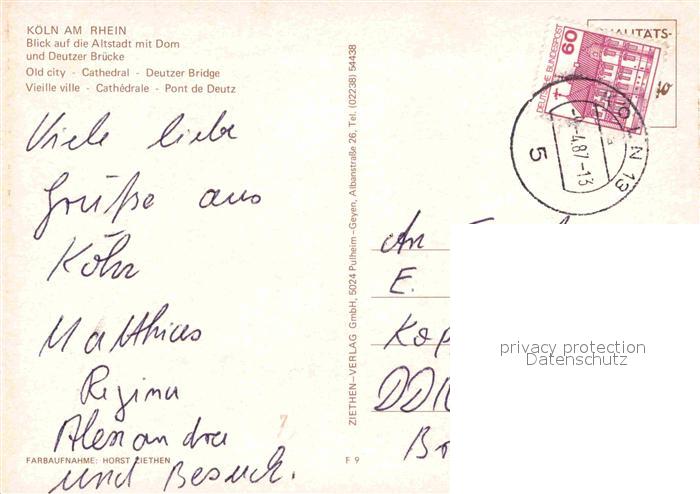 KÖLN AM RHEIN
Blick auf die Altstadt mit Dom
und Deutzer Brücke
Old city - Cathedral - Deutzer Bridge
Vieille ville - Cathédrale - Pont de Deutz
Viele liebe
Grüße aus
Köln
Matthias
Regina
Alexandra
und Besuch.
FARBAUFNAHME: HORST ZIETHEN
F 9
ZIETHEN-VERLAG GmbH, 5024 Pulheim-Geyen, Albanstraße 26, Tel. (02238) 54438
QUALITÄTS-
DEUTSCHE BUNDESPOST
60
4.87-13
13
5
An
E.
Kop
DDR
privacy protection
Datenschutz